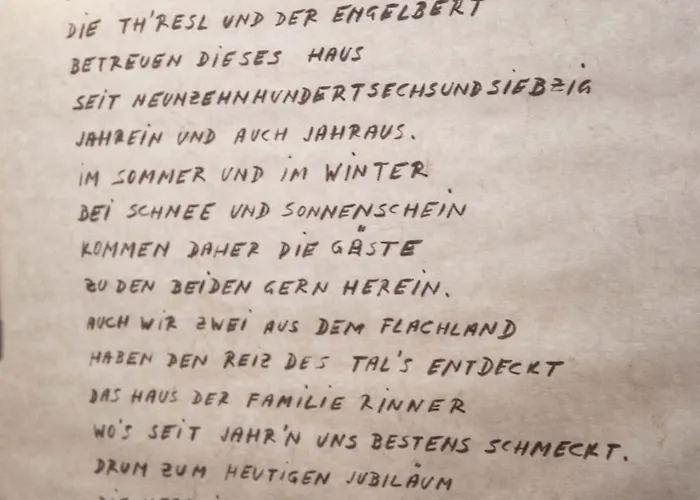 DIE TH'RESL UND DER ENGELBERT
BETREUEN DIESES HAUS
SEIT NEUNZEHNHUNDERTSECHSUNDSIEBZIG
JAHREIN UND AUCH JAHRAUS.
IM SOMMER UND IM WINTER
BEI SCHNEE UND SONNENSCHEIN
KOMMEN DAHER DIE GÄSTE
ZU DEN BEIDEN GERN HEREIN.
AUCH WIR ZWEI AUS DEM FLACHLAND
HABEN DEN REIZ DES TAL'S ENTDECKT
DAS HAUS DER FAMILIE RINNER
WO'S SEIT JAHR'N UNS BESTENS SCHMECKT.
DRUM ZUM HEUTIGEN JUBILÄUM